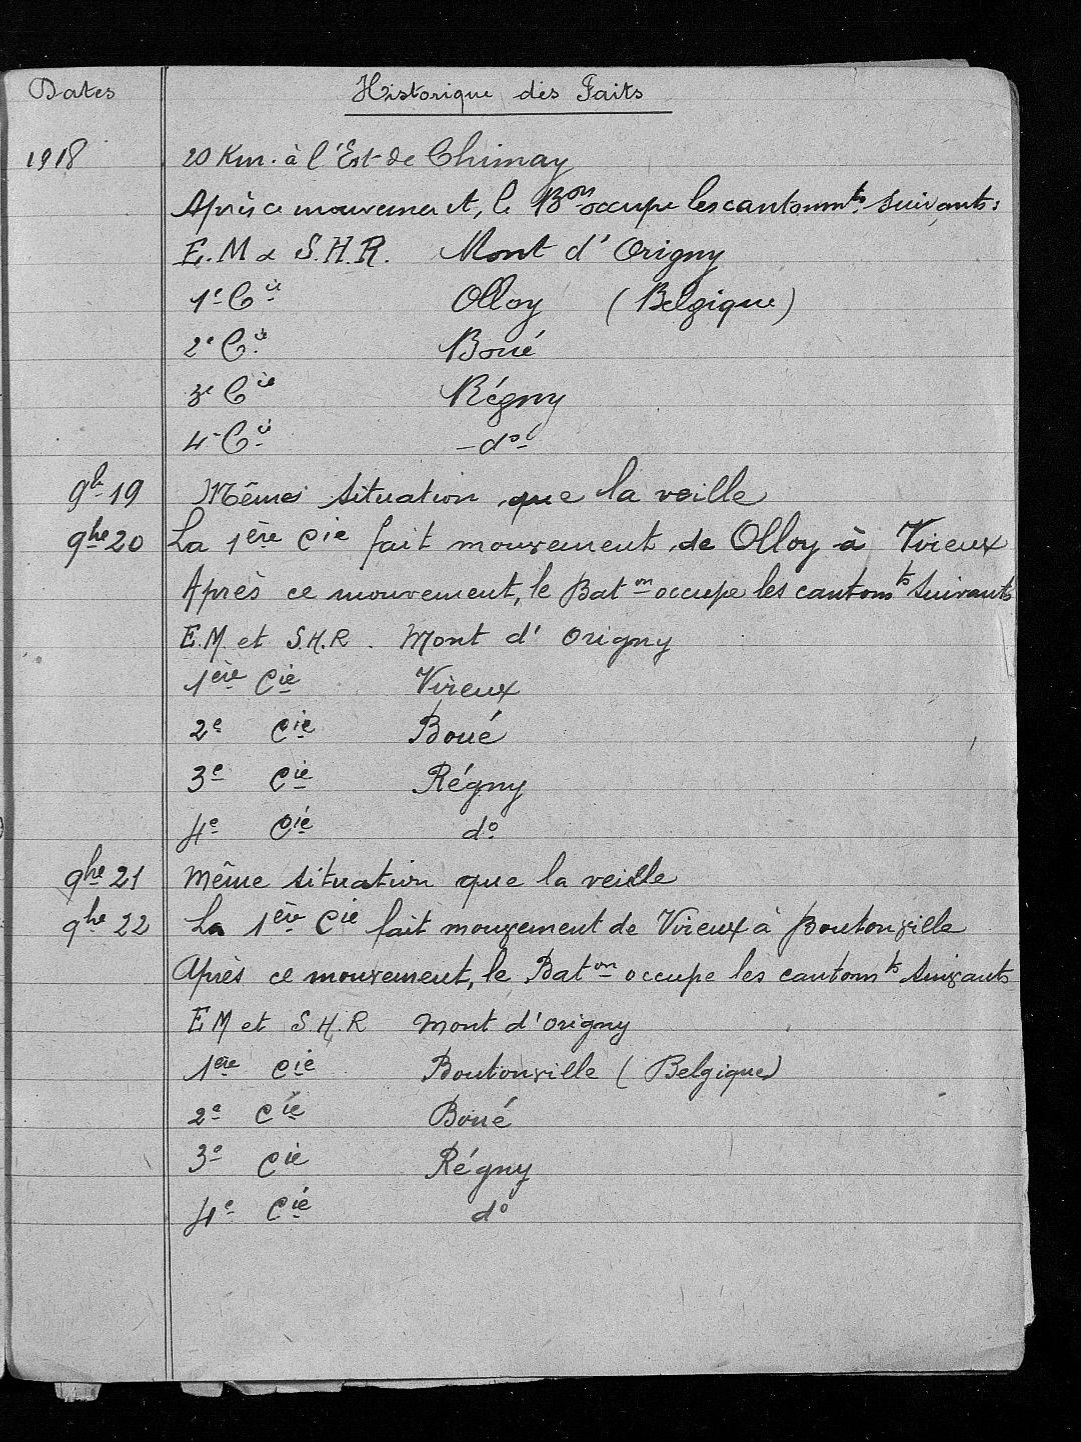 Dates Historique des Faits
1918 20 Km. à l'Est de Chimay
Après ce mouvement, le Bon occupe les cantonmts suivants:
E.M & S.H.R. Mont d'Origny
1e Cie Olloy (Belgique)
2e Cie Boué
3e Cie Régny
4e Cie - do -
9bre 19 Même situation que la veille
9bre 20 La 1ère Cie fait mouvement de Olloy à Vireux
Après ce mouvement, le Baton occupe les cantonmts suivants
E.M. et S.H.R. Mont d'Origny
1ère Cie Vireux
2e Cie Boué
3e Cie Régny
4e Cie do
9bre 21 Même situation que la veille
9bre 22 La 1ère Cie fait mouvement de Vireux à Boutonville
Après ce mouvement, le Baton occupe les cantonmts suivants
E M et S.H.R Mont d'Origny
1ère Cie Boutonville (Belgique)
2e Cie Boué
3e Cie Régny
4e Cie do